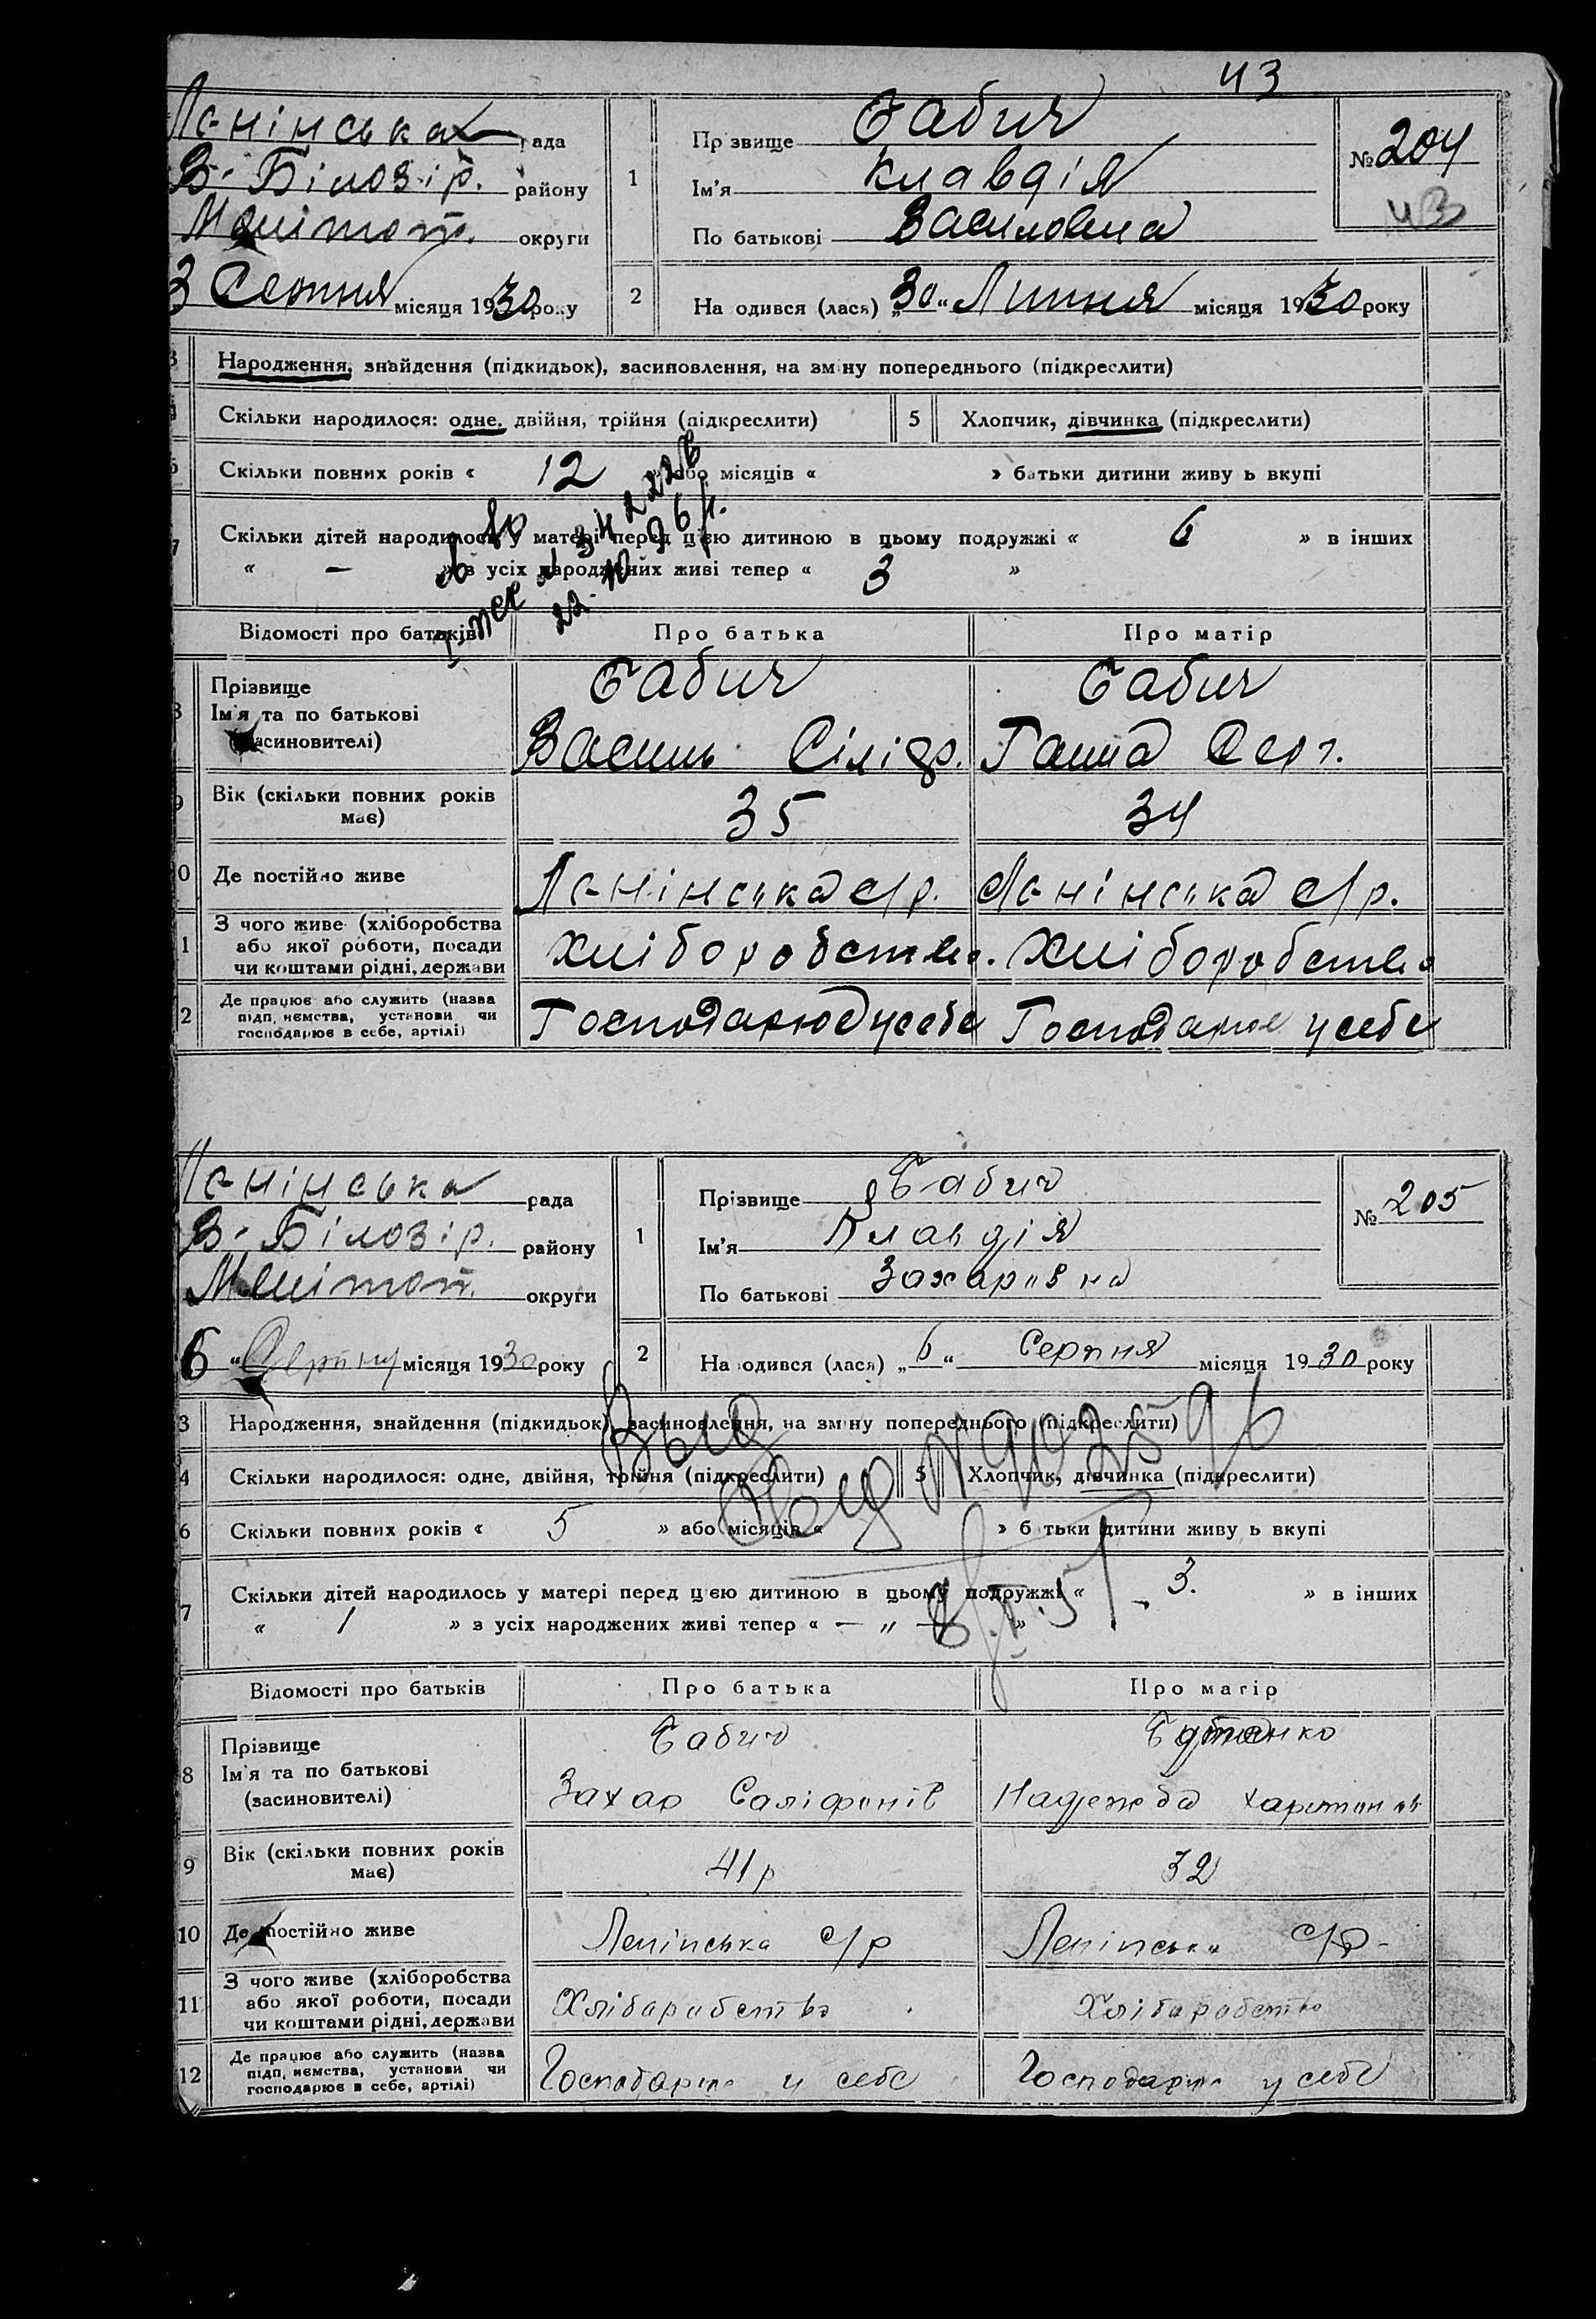 43
Ленінська рада
В-Білозір. району
Меліт оп. округи
3 Серпня місяця 1930 року
1
Прізвище Бабич
Ім'я Клавдія
По батькові Василовна
№ 204
43
2
На одився (лася) „30“ Липня місяця 1930 року
3
Народження, знайдення (підкидьок), засиновлення, на зміну попереднього (підкреслити)
Скільки народилося: одне, двійня, трійня (підкреслити)
5
Хлопчик, дівчинка (підкреслити)
Скільки повних років « 12 » або місяців « » батьки дитини живу ь вкупі
7
Скільки дітей народилось у матері перед цією дитиною в цьому подружжі « 6 » в інших
« — » з усіх народжених живі тепер « 3 »
Відомості про батьків
Про батька
Про матір
Прізвище
Ім'я та по батькові
(засиновителі)
Бабич
Василь Сіліф.
Бабич
Ганна Серг.
Вік (скільки повних років
має)
35
34
0
Де постійно живе
Ленінська с/р.
Ленінська с/р.
1
З чого живе (хліборобства
або якої роботи, посади
чи коштами рідні, держави
Хліборобство.
Хліборобство
2
Де працює або служить (назва
підп, иємства, установи чи
господарює в себе, артілі)
Господарює у себе
Господарює у себе
Ленінська рада
В-Білозір. району
Мелітоп. округи
6 „Серпня місяця 1930 року
1
Прізвище Бабич
Ім'я Клавдія
По батькові Захарівна
№ 205
2
На одився (лася) „6“ Серпня місяця 1930 року
3
Народження, знайдення (підкидьок), засиновлення, на зміну попереднього (підкреслити)
4
Скільки народилося: одне, двійня, трійня (підкреслити)
5
Хлопчик, дівчинка (підкреслити)
6
Скільки повних років « 5 » або місяців « » б тьки дитини живу ь вкупі
7
Скільки дітей народилось у матері перед цією дитиною в цьому подружжі « 3. » в інших
« 1 » з усіх народжених живі тепер « — „ — »
Відомості про батьків
Про батька
Про матір
8
Прізвище
Ім'я та по батькові
(засиновителі)
Бабич
Захар Саліфонів
Надежда
9
Вік (скільки повних років
має)
41 р
32
10
Де постійно живе
Ленінська с/р
Ленінська с/р-
11
З чого живе (хліборобства
або якої роботи, посади
чи коштами рідні, держави
Хлібарабство
Хлібарабство
12
Де працює або служить (назва
підп, иємства, установи чи
господарює в себе, артілі)
Господарює у себе
Господарює у себе